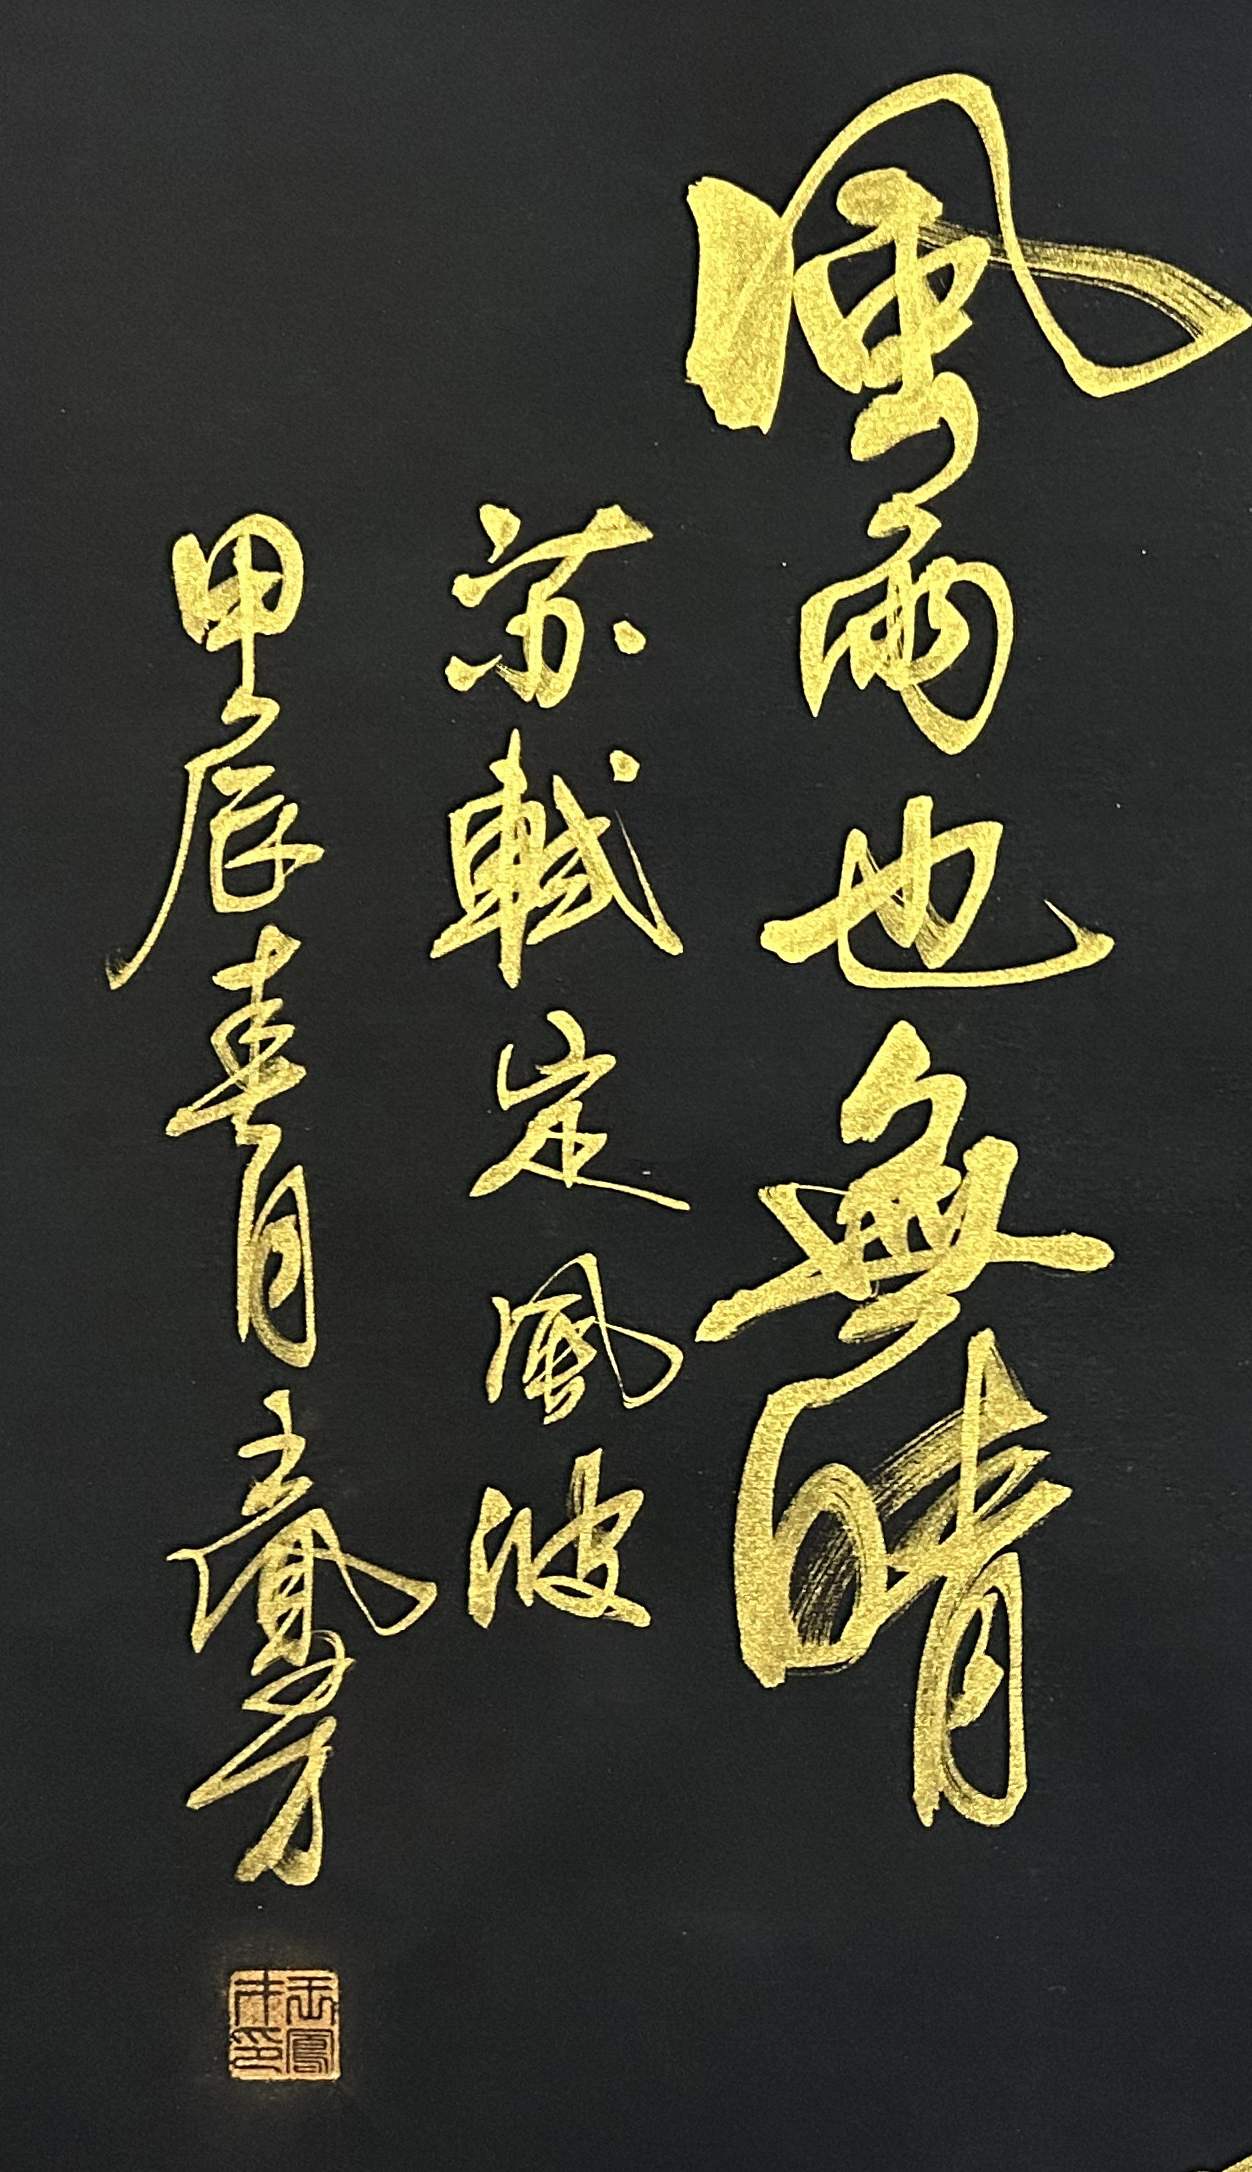 風雨也無晴
蘇軾定風波
甲辰春月玉鳳芳